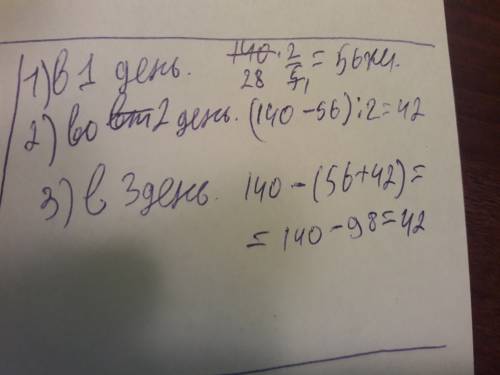 1) в 1 день. 140 · 2/5 = 56 км.
28 1
2) во 2 день. (140 - 56) : 2 = 42
3) в 3 день. 140 - (56 + 42) =
= 140 - 98 = 42